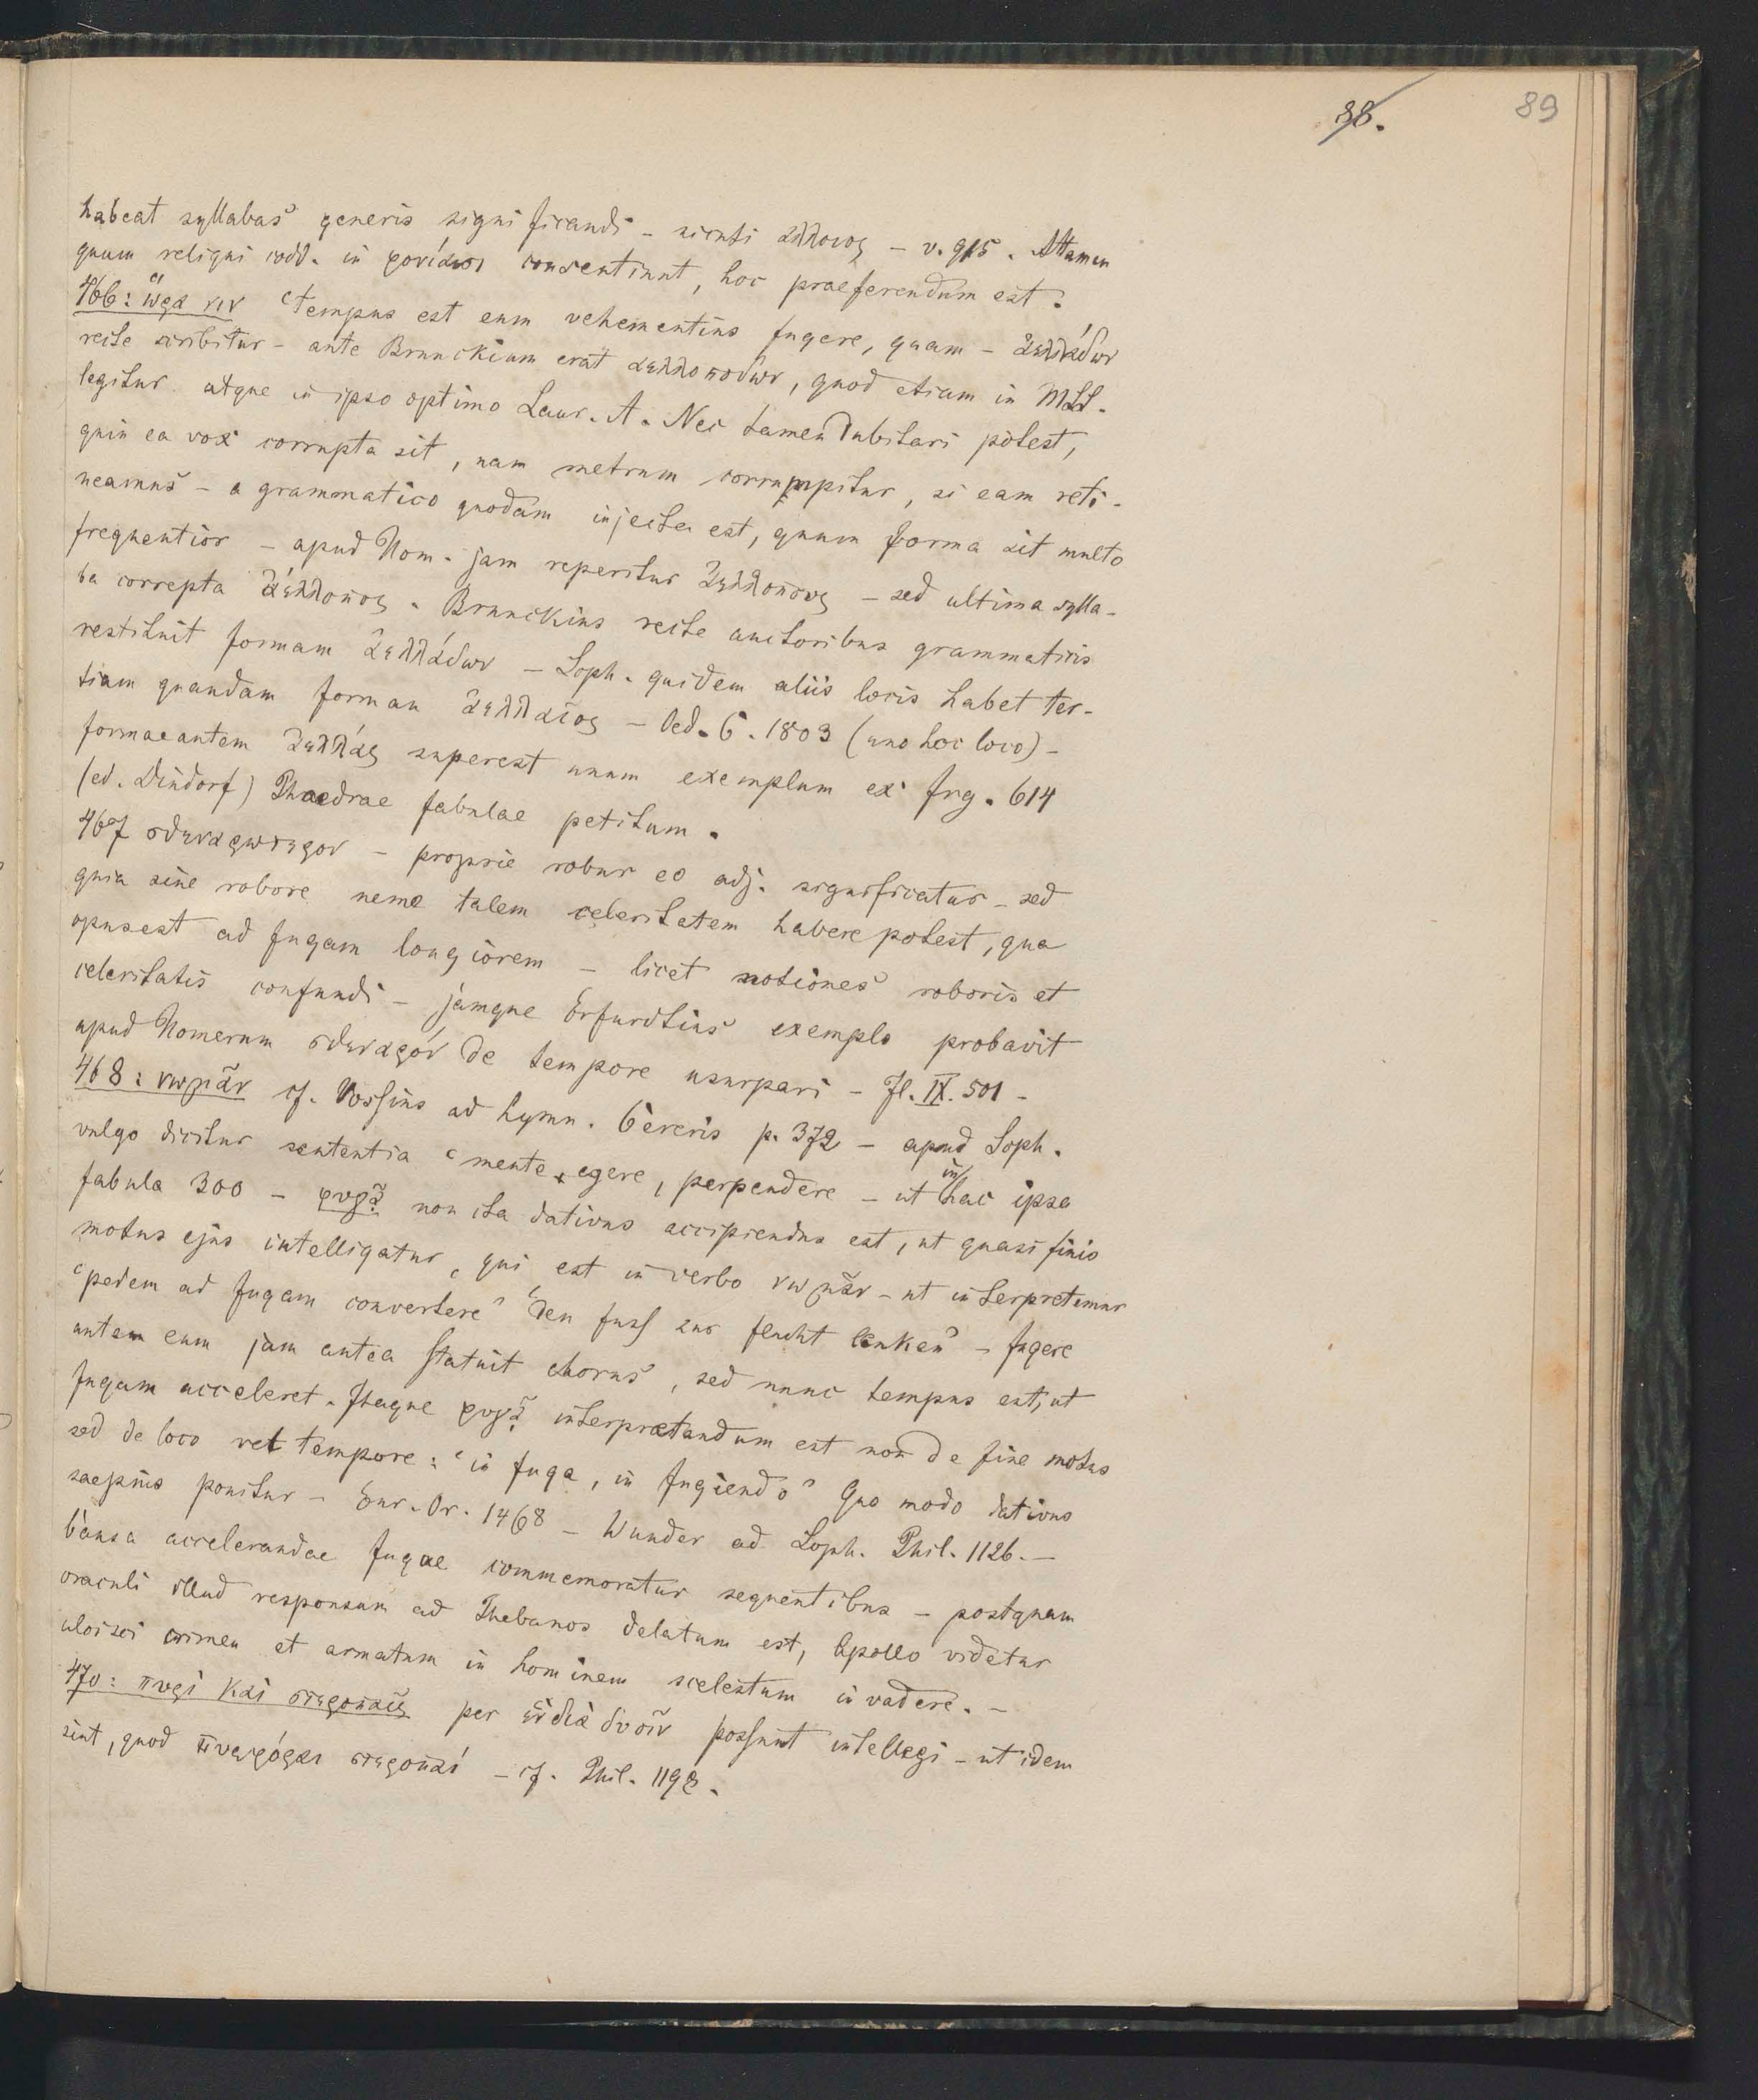 88.
89
habeat syllabas generis significandi – sicuti ἄλλοιος – v. 915. Attamen
quum reliqui codd. in φονίαισι consentiunt, hoc praeferendum est.
466: ὥρα νιν ‘tempus est eum vehementius fugere, quam – ἀελλάδων
recte scribitur – ante Brunckium erat ἀελλοπόδων, quod etiam in MSS.
legitur atque in ipso optimo Laur. A. Nec tamen dubitari potest,
quin ea vox corrupta sit, nam metrum corrumpitur, si eam reti-
neamus – a grammatico quodam injecta est, quum forma sit multo
frequentior – apud Hom. jam reperitur ἀελλόπους – sed ultima sylla-
ba correpta ἀέλλοπος. Brunckius recte auctoribus grammaticis
restituit formam ἀελλάδων – Soph. quidem aliis locis habet ter-
tiam quandam formam ἀελλαῖος – Oed. C. 1803 (uno hoc loco) –
formae autem ἀελλάς superest unum exemplum ex frg. 614
(ed. Dindorf) Phaedrae fabulae petitum.
467 σθεναρώτερον – proprie robur eo adj. significatur – sed
quia sine robore nemo talem celeritatem habere potest, qua
opus est ad fugam longiorem – licet notiones roboris et
celeritatis confundi – jamque Erfurdtius exemplo probavit
apud Homerum σθεναρόν de tempore usurpari – Il. IX. 501 –
468: νωμᾶν cf. Vossius ad hymn. Cereris p. 372 – apud Soph.
vulgo dicitur sententia ‘mente egere, perpendere – ut in hac ipsa
fabula 300 – φυγᾷ non ita dativus accipiendus est, ut quasi finis
motus ejus intelligatur, qui est in verbo νωμᾶν – ut interpretemur
‘pedem ad fugam convertere’ ‘den fuss zur flucht lenken’ – fugere
autem eum jam antea statuit chorus, sed nunc tempus est, ut
fugam acceleret. Itaque φυγᾷ interpretandum est non de fine motus
sed de loco vel tempore: ‘in fuga, in fugiendo’ Quo modo dativus
saepius ponitur – Eur. Or. 1468 – Wunder ad Soph. Phil. 1126. –
Causa accelerandae fugae commemoratur sequentibus – postquam
oraculi illud responsum ad Thebanos delatum est, Apollo videtur
ulcisci crimen et armatum in hominem scelestum invadere. –
470: πυρὶ καὶ στεροπαῖς per ἓν διὰ δυοῖν possunt intellegi – ut idem
sint, quod πυρφόροι στεροπαί – cf. Phil. 1198.